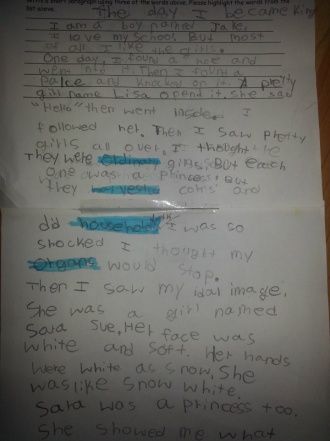 short paragraph using three of the words above. Please highlight the words from the
list above.
The day I became King
I am a boy named Jake.
I love my School But most
of all I like the girls.
One day, I found a hole and
went into it. Then I found a
Palace and knocked on it A pretty
girl name Lisa opend it, she said
"Hello" then went inside. I
followed her. Then I saw pretty
girls all over. I thought
They were ordinary girls, But each
one was a princess. But
they harvested coins and
did household I was so
shocked I thought my
Organs would stop.
Then I saw my idal image.
She was a girl named
Sara Sue. Her face was
white and soft. Her hands
were white as snow. She
was like snow white.
Sara was a princess too.
She showed me what